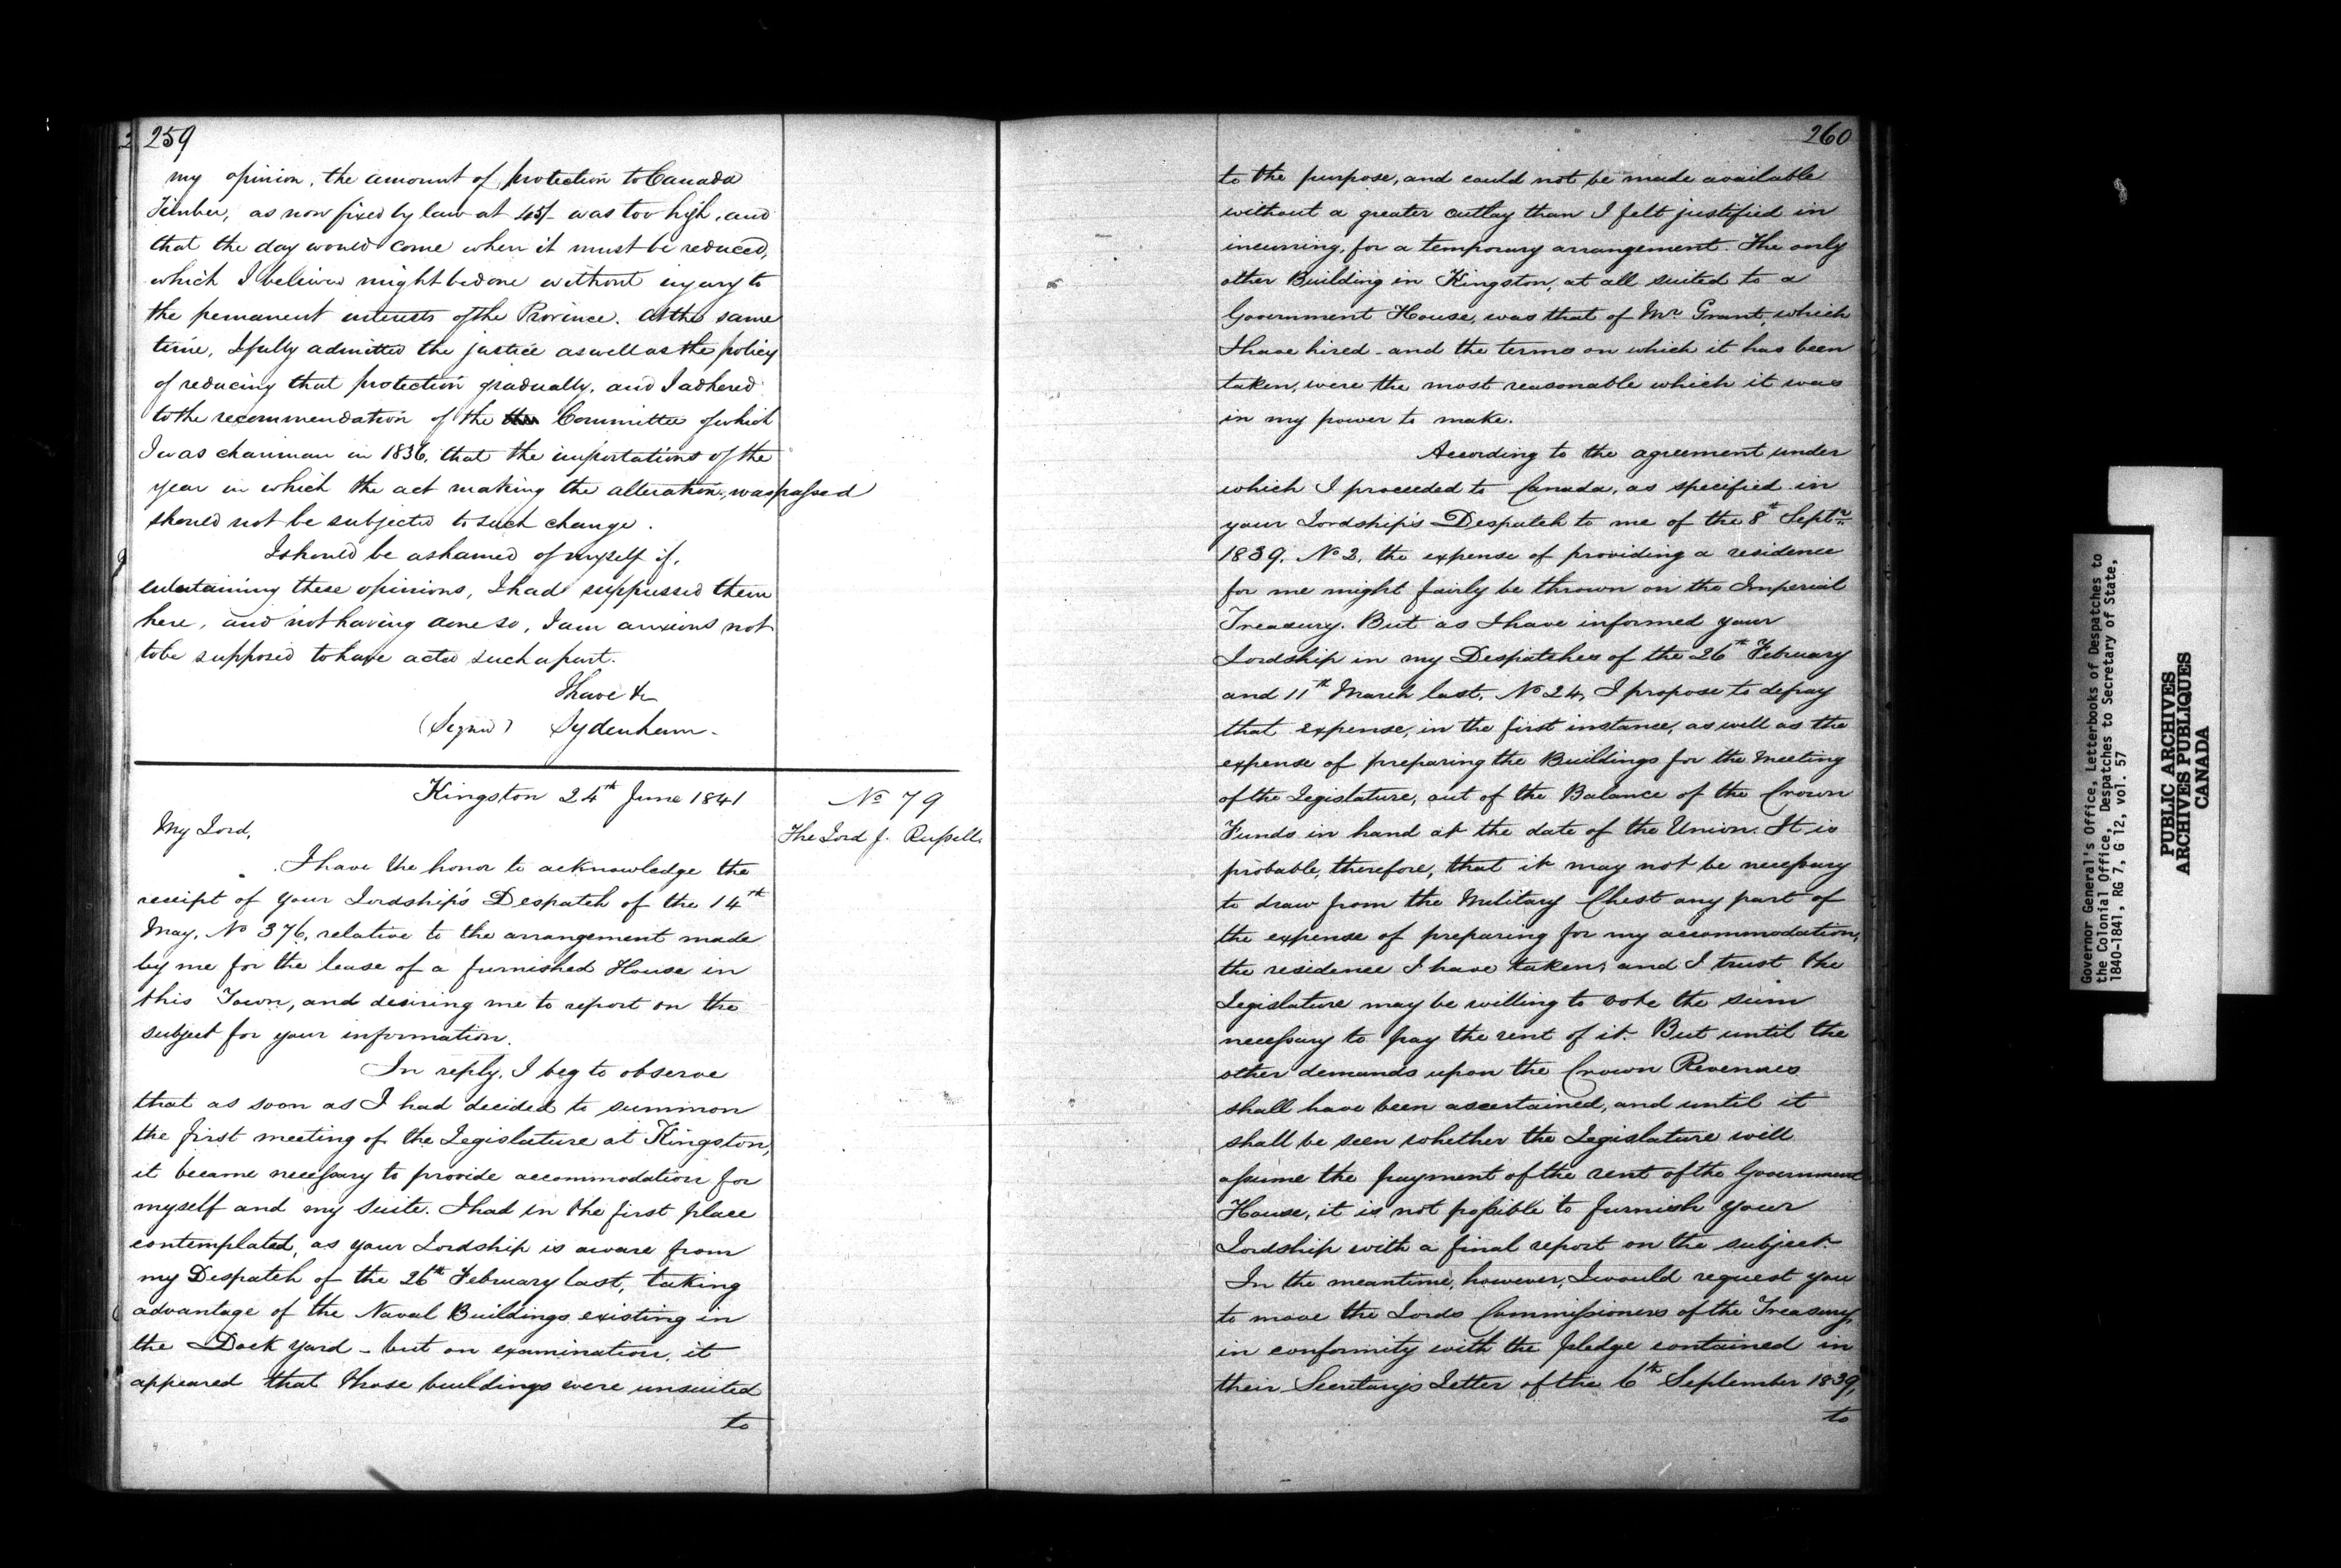 259
my opinion, the amount of protection to Canada
Timber, as now fixed by law at 45/- was too high, and
that the day would come when it must be reduced,
which I believed might be done without injury to
the permanent interests of the Province. At the same
time, I fully admitted the justice as well as the policy
of reducing that protection gradually, and I adhered
to the recommendation of the Committee of which
I was chairman in 1836, that the importations of the
year in which the act making the alteration, was passed
should not be subjected to such change.
I should be ashamed of myself if,
entertaining these opinions, I had suppressed them
here, and not having done so, I am anxious not
to be supposed to have acted such a part.
I have &c
(Signed) Sydenham.
Kingston 24th June 1841
No 79
The Lord J. Russell.
My Lord,
I have the honor to acknowledge the
receipt of your Lordship's Despatch of the 14th
May, No 376, relative to the arrangement made
by me for the lease of a furnished House in
this Town, and desiring me to report on the
subject for your information.
In reply, I beg to observe
that as soon as I had decided to summon
the first meeting of the Legislature at Kingston,
it became necessary to provide accommodation for
myself and my suite. I had in the first place
contemplated, as your Lordship is aware from
my Despatch of the 26th February last, taking
advantage of the Naval Buildings existing in
the Dock yard - but on examination, it
appeared that those buildings were unsuited
to
260
to the purpose, and could not be made available
without a greater outlay than I felt justified in
incurring, for a temporary arrangement. The only
other Building in Kingston, at all suited to a
Government House, was that of Mr Grant, which
I have hired - and the terms on which it has been
taken, were the most reasonable which it was
in my power to make.
According to the agreement under
which I proceeded to Canada, as specified in
your Lordship's Despatch to me of the 8th Septr
1839. No 2, the expense of providing a residence
for me might fairly be thrown on the Imperial
Treasury. But as I have informed your
Lordship in my Despatches of the 26th February
and 11th March last, No 24, I propose to defray
that expense, in the first instance, as well as the
expense of preparing the Buildings for the Meeting
of the Legislature, out of the Balance of the Crown
Funds in hand at the date of the Union. It is
probable, therefore, that it may not be necessary
to draw from the Military Chest any part of
the expense of preparing for my accommodation,
the residence I have taken, and I trust the
Legislature may be willing to vote the sum
necessary to pay the rent of it. But until the
other demands upon the Crown Revenues
shall have been ascertained, and until it
shall be seen whether the Legislature will
assume the payment of the rent of the Government
House, it is not possible to furnish your
Lordship with a final report on the subject.
In the meantime, however, I would request you
to move the Lords Commissioners of the Treasury,
in conformity with the pledge contained in
their Secretary's Letter of the 6th September 1839,
to
Governor General's Office, Letterbooks of Despatches to
the Colonial Office, Despatches to Secretary of State,
1840-1841, RG 7, G 12, vol. 57
PUBLIC ARCHIVES
ARCHIVES PUBLIQUES
CANADA